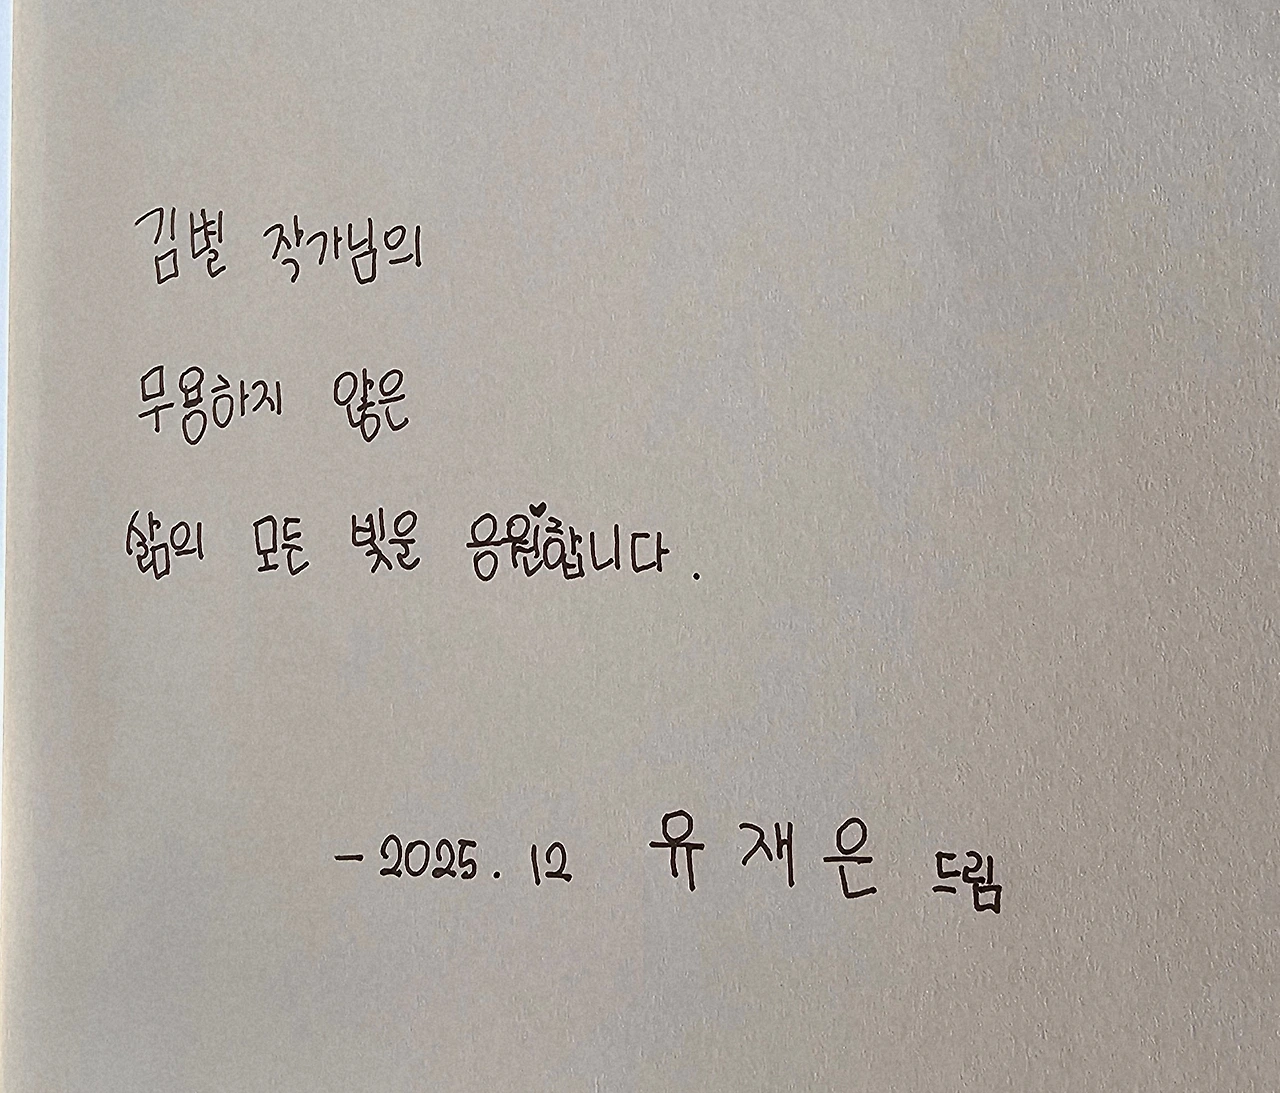 김별 작가님의
무용하지 않은
삶의 모든 빛을 응원합니다.
- 2025. 12 유재은 드림